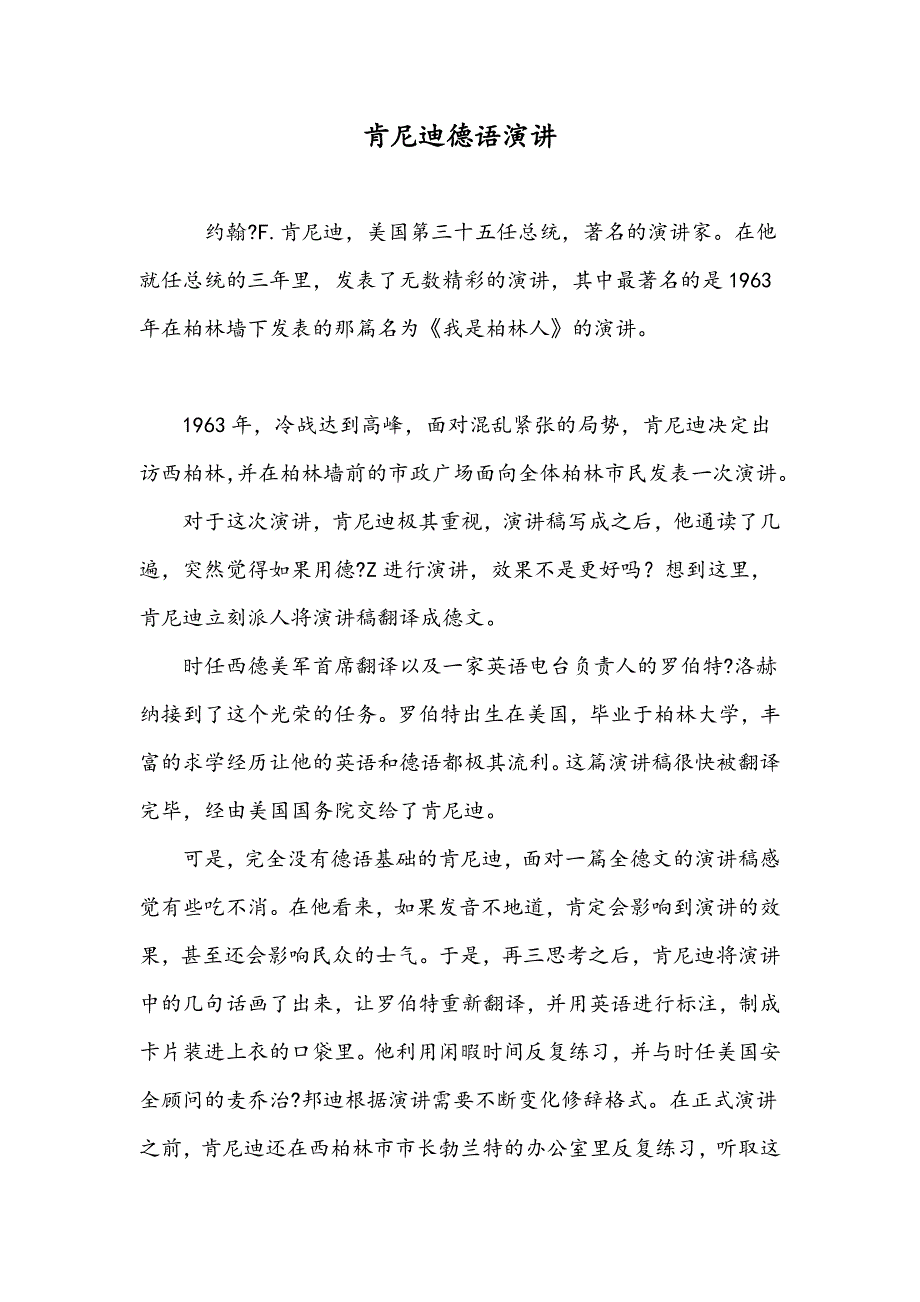 肯尼迪德语演讲
约翰?F.肯尼迪，美国第三十五任总统，著名的演讲家。在他
就任总统的三年里，发表了无数精彩的演讲，其中最著名的是1963
年在柏林墙下发表的那篇名为《我是柏林人》的演讲。
1963年，冷战达到高峰，面对混乱紧张的局势，肯尼迪决定出
访西柏林,并在柏林墙前的市政广场面向全体柏林市民发表一次演讲。
对于这次演讲，肯尼迪极其重视，演讲稿写成之后，他通读了几
遍，突然觉得如果用德?Z进行演讲，效果不是更好吗？想到这里，
肯尼迪立刻派人将演讲稿翻译成德文。
时任西德美军首席翻译以及一家英语电台负责人的罗伯特?洛赫
纳接到了这个光荣的任务。罗伯特出生在美国，毕业于柏林大学，丰
富的求学经历让他的英语和德语都极其流利。这篇演讲稿很快被翻译
完毕，经由美国国务院交给了肯尼迪。
可是，完全没有德语基础的肯尼迪，面对一篇全德文的演讲稿感
觉有些吃不消。在他看来，如果发音不地道，肯定会影响到演讲的效
果，甚至还会影响民众的士气。于是，再三思考之后，肯尼迪将演讲
中的几句话画了出来，让罗伯特重新翻译，并用英语进行标注，制成
卡片装进上衣的口袋里。他利用闲暇时间反复练习，并与时任美国安
全顾问的麦乔治?邦迪根据演讲需要不断变化修辞格式。在正式演讲
之前，肯尼迪还在西柏林市市长勃兰特的办公室里反复练习，听取这